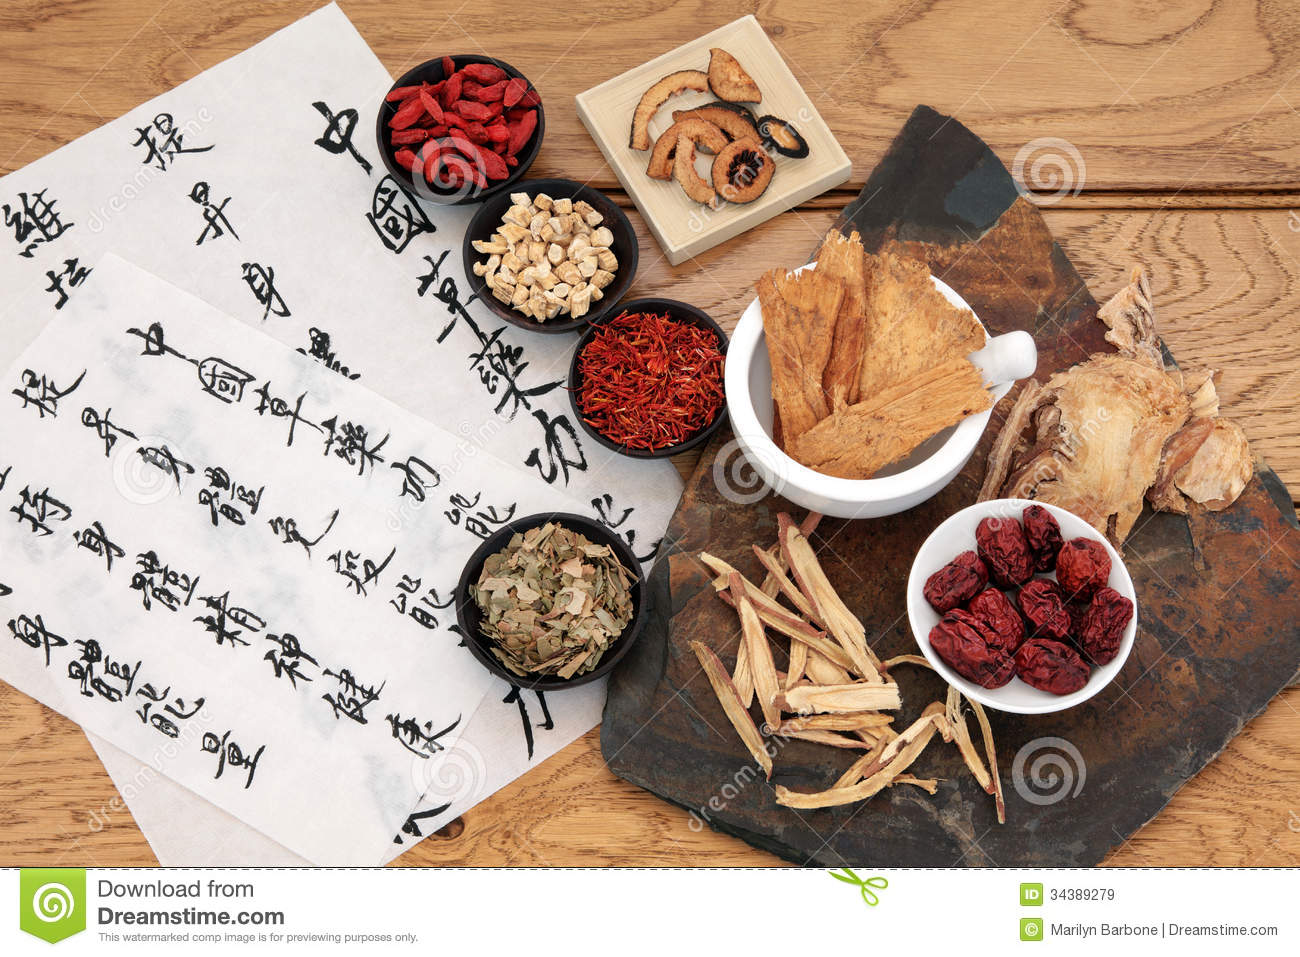 中國草藥功
提昇身體
維
中國草藥功能
提昇身體免疫能
持身體精神健康
身體能量
dreamstime
Download from
Dreamstime.com
This watermarked comp image is for previewing purposes only.
ID 34389279
© Marilyn Barbone | Dreamstime.com